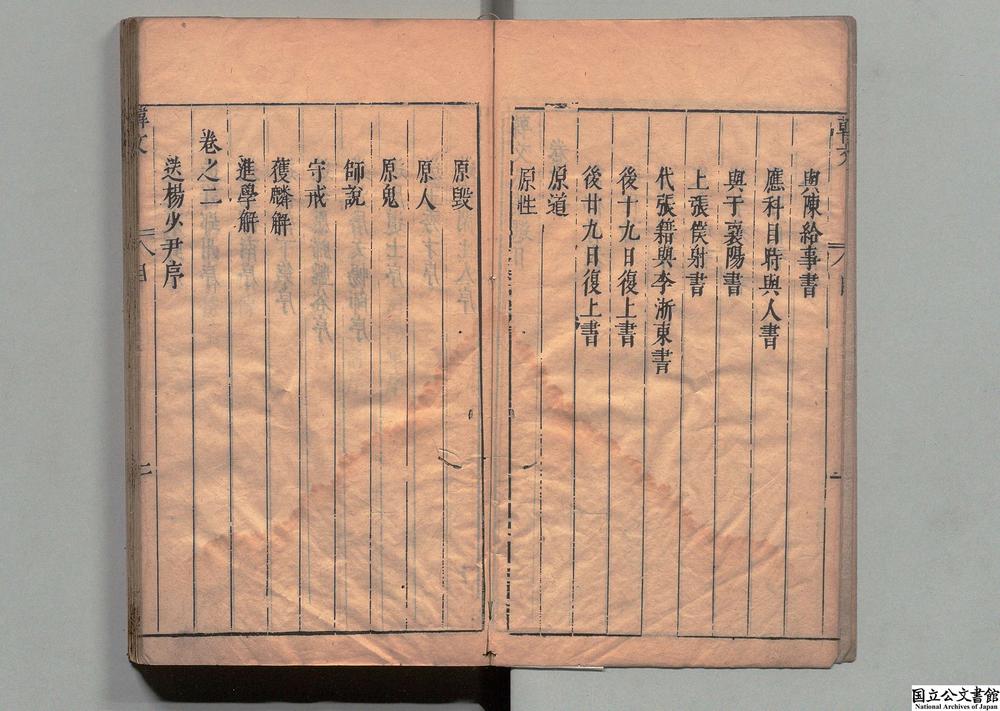 與陳給事書
應科目時與人書
與于襄陽書
上張僕射書
代張籍與李浙東書
後十九日復上書
後廿九日復上書
原道
原性
原毀
原人
原鬼
師說
守戒
獲麟解
進學解
卷之二
送楊少尹序
韓文
目
國立公文書館
National Archives of Japan